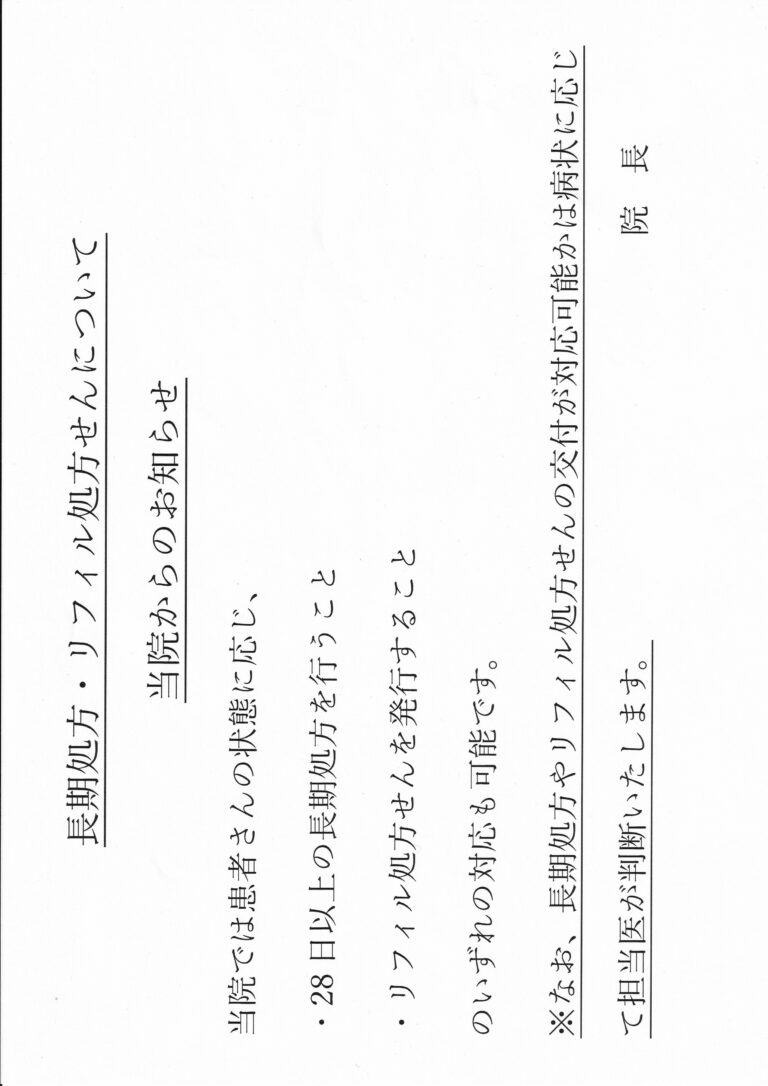 長期処方・リフィル処方せんについて
当院からのお知らせ
当院では患者さんの状態に応じ、
・28日以上の長期処方を行うこと
・リフィル処方せんを発行すること
のいずれの対応も可能です。
※なお、長期処方やリフィル処方せんの交付が対応可能かは病状に応じ
て担当医が判断いたします。
院　長